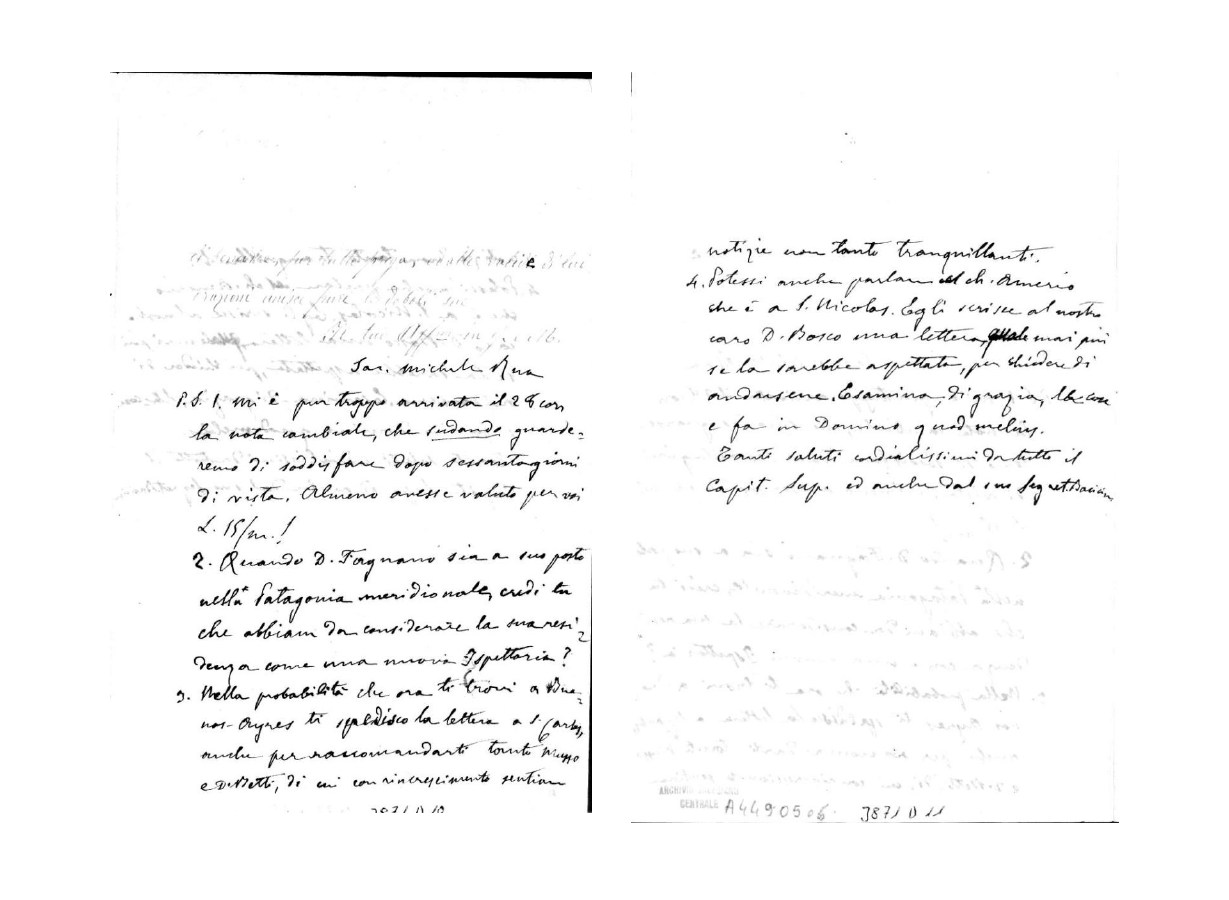 Sac. Michele Rua
P.S. 1. Mi è pur troppo arrivata il 28 corr
la nota cambiale, che sudando guarde=
remo di soddisfare dopo sessanta giorni
di vista. Almeno avesse valuto per voi
L. 15/m.!
2. Quando D. Fagnano sia a suo posto
nella Patagonia meridionale, credi tu
che abbiam da considerare la sua resi=
denza come una nuova Ispettoria?
3. Nella probabilità che ora ti trovi a Bue=
nos-Ayres ti spedisco la lettera a S. Carlos,
anche per raccomandarti tanto
e D. Betti, di cui con rincrescimento sentiam
3871 D 10
notizie non tanto tranquillanti.
4. Potessi anche parlare al ch. Amerio
che è a S. Nicolas. Egli scrisse al nostro
caro D. Bosco una lettera, quale mai più
se la sarebbe aspettata, per chiedere di
andarsene. Esamina, di grazia, le cose
e fa in Domino quod melius.
Tanti saluti cordialissimi da tutto il
Capit. Sup. ed anche dal suo Segret.
ARCHIVIO
CENTRALE A4490506 3871 D 11